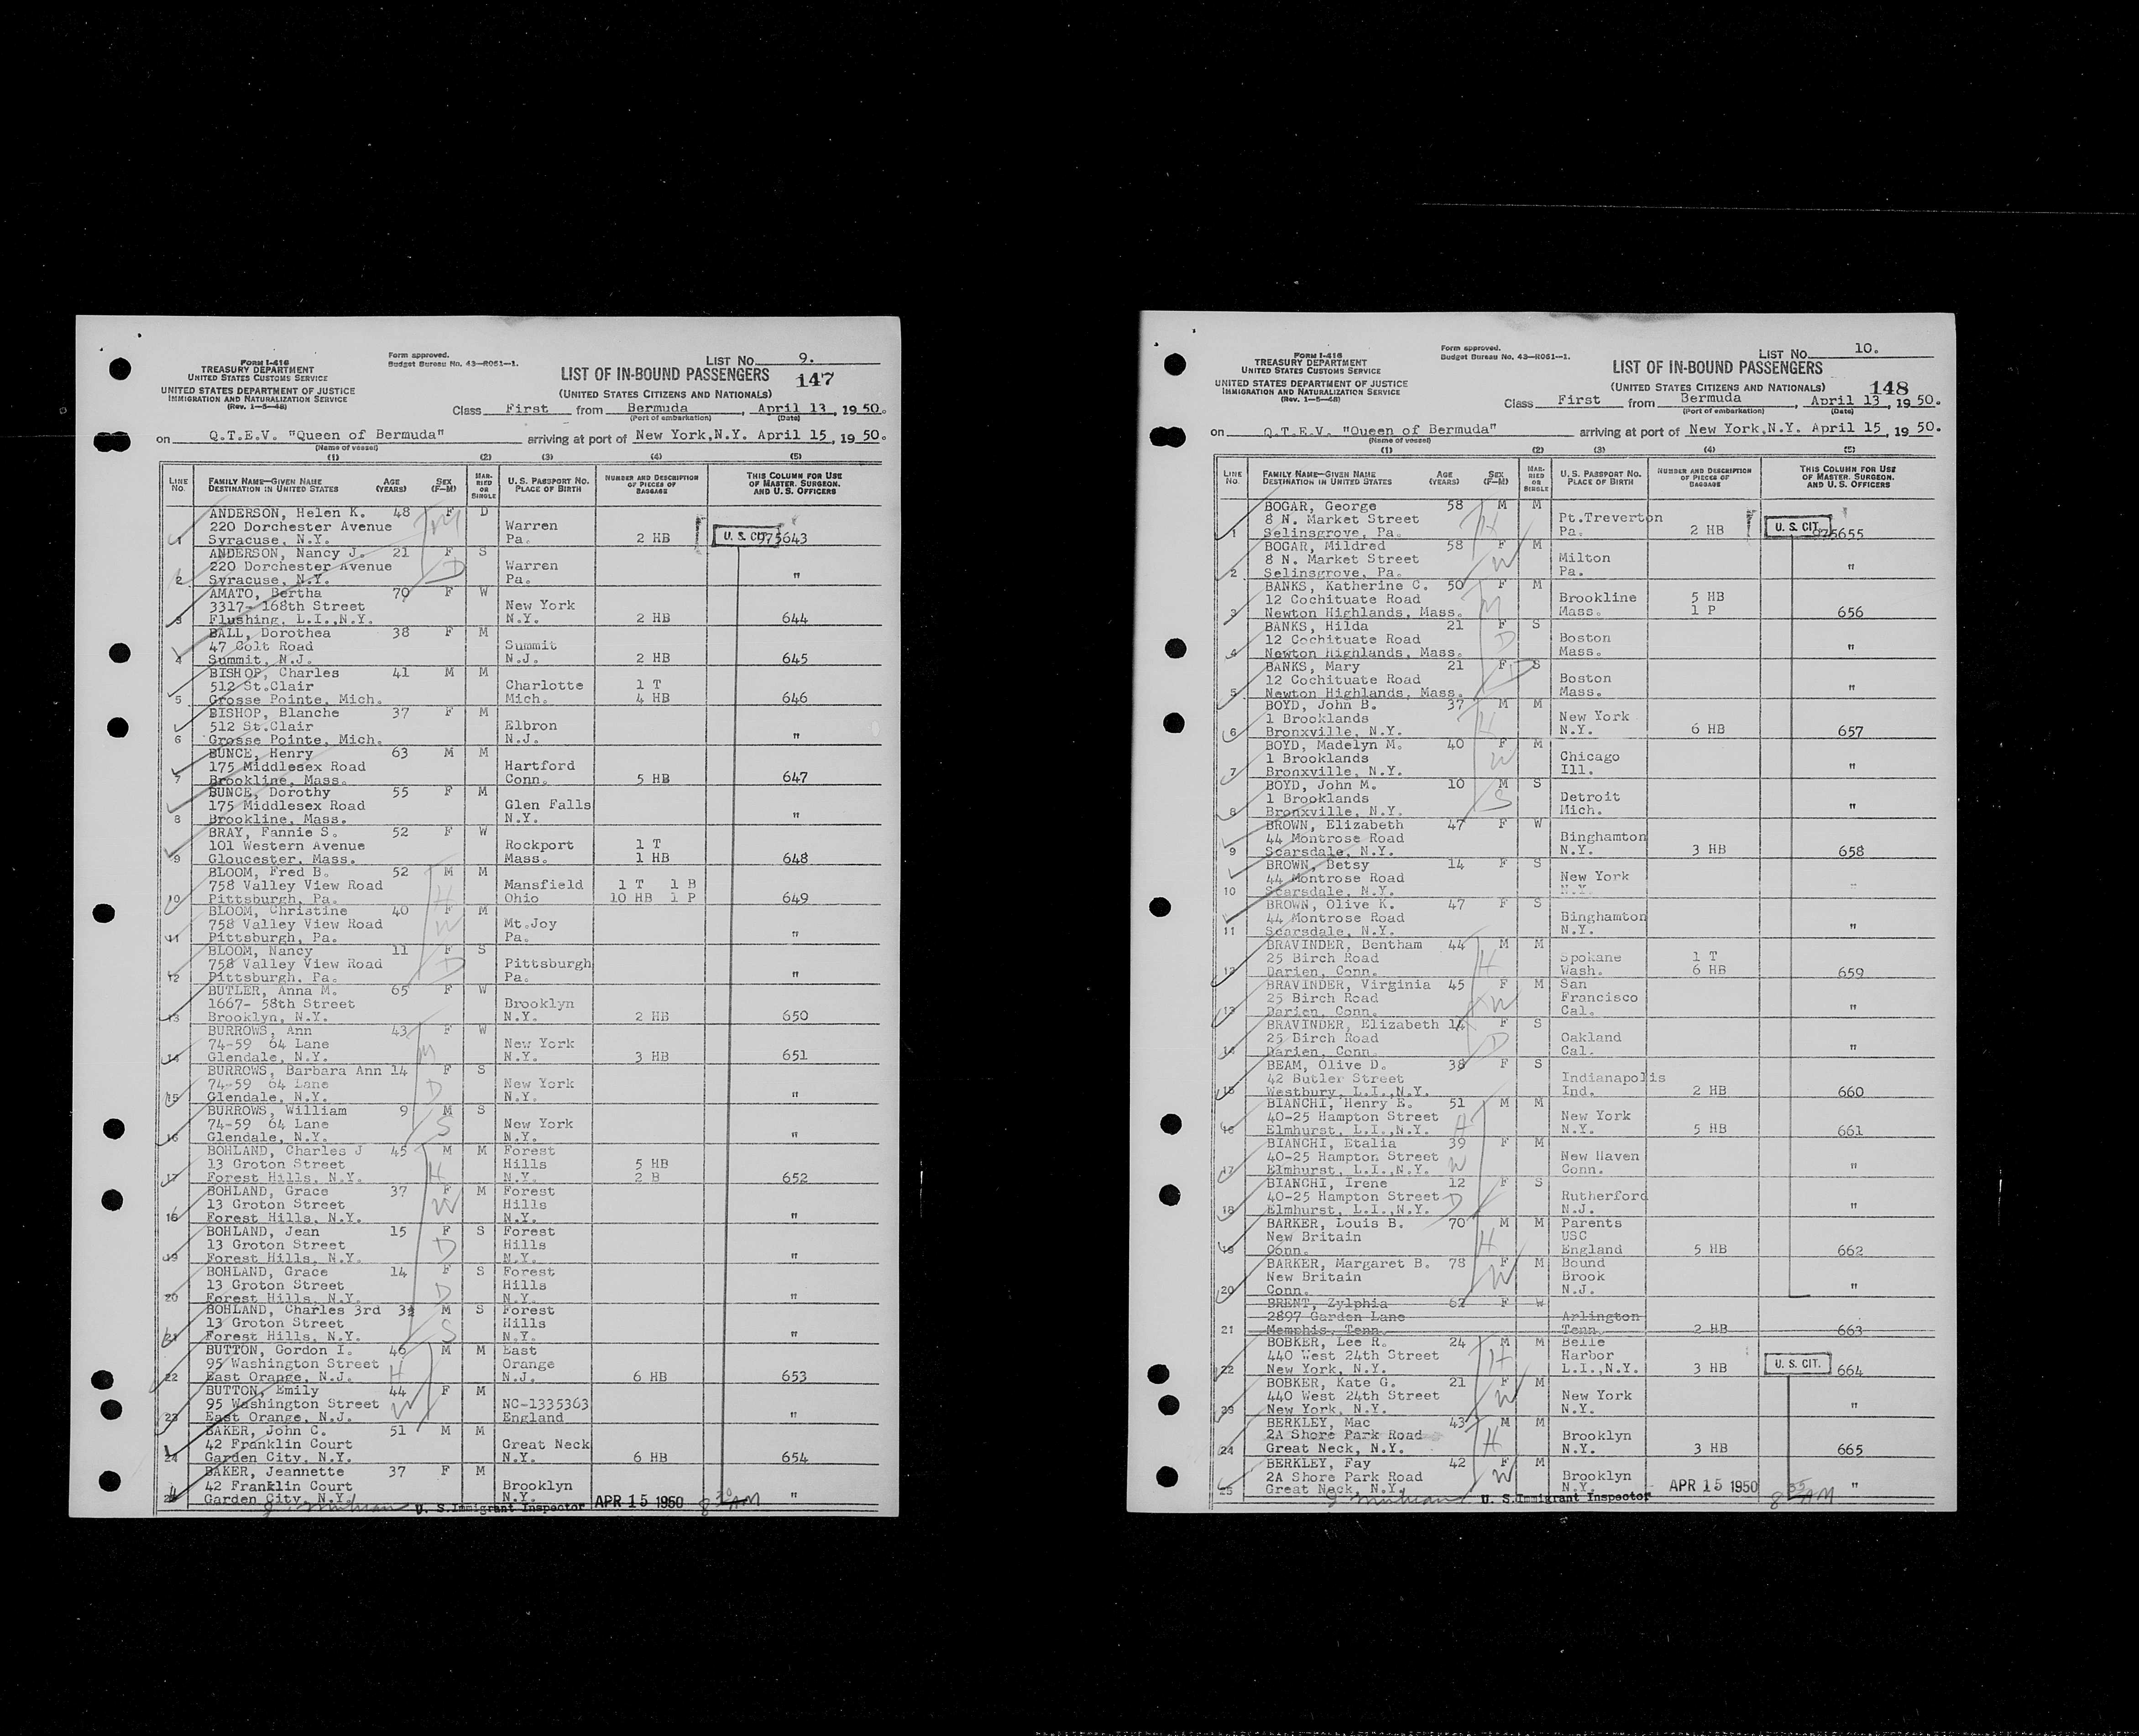 FORM I-416
TREASURY DEPARTMENT
UNITED STATES CUSTOMS SERVICE
UNITED STATES DEPARTMENT OF JUSTICE
IMMIGRATION AND NATURALIZATION SERVICE
(Rev. 1-5-48)
Form approved.
Budget Bureau No. 43-R051-1.
LIST No. 9.
LIST OF IN-BOUND PASSENGERS
147
(UNITED STATES CITIZENS AND NATIONALS)
Class First from Bermuda, April 13, 1950.
(Port of embarkation) (Date)
on Q.T.E.V. "Queen of Bermuda" arriving at port of New York,N.Y. April 15, 1950.
(Name of vessel)
(1) (2) (3) (4) (5)
LINE No. FAMILY NAME—GIVEN NAME DESTINATION IN UNITED STATES AGE (YEARS) SEX (F-M) MARRIED OR SINGLE U. S. PASSPORT NO. PLACE OF BIRTH NUMBER AND DESCRIPTION OF PIECES OF BAGGAGE THIS COLUMN FOR USE OF MASTER, SURGEON, AND U. S. OFFICERS
ANDERSON, Helen K. 48 F D
220 Dorchester Avenue Warren
1 Syracuse, N.Y. Pa. 2 HB U. S. CIT. 975643
ANDERSON, Nancy J. 21 F S
220 Dorchester Avenue Warren
2 Syracuse, N.Y. Pa. "
AMATO, Bertha 70 F W
3317- 168th Street New York
3 Flushing, L.I.,N.Y. N.Y. 2 HB 644
BALL, Dorothea 38 F M
47 Colt Road Summit
4 Summit, N.J. N.J. 2 HB 645
BISHOP, Charles 41 M M
512 St.Clair Charlotte 1 T
5 Grosse Pointe, Mich. Mich. 4 HB 646
BISHOP, Blanche 37 F M
512 St.Clair Elbron
6 Grosse Pointe, Mich. N.J. "
BUNCE, Henry 63 M M
175 Middlesex Road Hartford
7 Brookline, Mass. Conn. 5 HB 647
BUNCE, Dorothy 55 F M
175 Middlesex Road Glen Falls
8 Brookline, Mass. N.Y. "
BRAY, Fannie S. 52 F W
101 Western Avenue Rockport 1 T
9 Gloucester, Mass. Mass. 1 HB 648
BLOOM, Fred B. 52 M M
758 Valley View Road Mansfield 1 T 1 B
10 Pittsburgh, Pa. Ohio 10 HB 1 P 649
BLOOM, Christine 40 F M
758 Valley View Road Mt.Joy
11 Pittsburgh, Pa. Pa. "
BLOOM, Nancy 11 F S
758 Valley View Road Pittsburgh
12 Pittsburgh, Pa. Pa. "
BUTLER, Anna M. 65 F W
1667- 58th Street Brooklyn
13 Brooklyn, N.Y. N.Y. 2 HB 650
BURROWS, Ann 43 F W
74-59 64 Lane New York
14 Glendale, N.Y. N.Y. 3 HB 651
BURROWS, Barbara Ann 14 F S
74-59 64 Lane New York
15 Glendale, N.Y. N.Y. "
BURROWS, William 9 M S
74-59 64 Lane New York
16 Glendale, N.Y. N.Y. "
BOHLAND, Charles J 45 M M Forest
13 Groton Street Hills 5 HB
17 Forest Hills, N.Y. N.Y. 2 B 652
BOHLAND, Grace 37 F M Forest
13 Groton Street Hills
18 Forest Hills, N.Y. N.Y. "
BOHLAND, Jean 15 F S Forest
13 Groton Street Hills
19 Forest Hills, N.Y. N.Y. "
BOHLAND, Grace 14 F S Forest
13 Groton Street Hills
20 Forest Hills, N.Y. N.Y. "
BOHLAND, Charles 3rd 3½ M S Forest
13 Groton Street Hills
21 Forest Hills, N.Y. N.Y. "
BUTTON, Gordon I. 46 M M East
95 Washington Street Orange
22 East Orange, N.J. N.J. 6 HB 653
BUTTON, Emily 44 F M
95 Washington Street NC-1335363
23 East Orange, N.J. England "
BAKER, John C. 51 M M
42 Franklin Court Great Neck
24 Garden City, N.Y. N.Y. 6 HB 654
BAKER, Jeannette 37 F M
42 Franklin Court Brooklyn
25 Garden City, N.Y. N.Y. "
U. S. Immigrant Inspector APR 15 1950 8 30 AM
FORM I-416
TREASURY DEPARTMENT
UNITED STATES CUSTOMS SERVICE
UNITED STATES DEPARTMENT OF JUSTICE
IMMIGRATION AND NATURALIZATION SERVICE
(Rev. 1-5-48)
Form approved.
Budget Bureau No. 43-R051-1.
LIST No. 10.
LIST OF IN-BOUND PASSENGERS
(UNITED STATES CITIZENS AND NATIONALS) 148
Class First from Bermuda, April 13, 1950.
(Port of embarkation) (Date)
on Q.T.E.V. "Queen of Bermuda" arriving at port of New York,N.Y. April 15, 1950.
(Name of vessel)
(1) (2) (3) (4) (5)
LINE No. FAMILY NAME—GIVEN NAME DESTINATION IN UNITED STATES AGE (YEARS) SEX (F-M) MARRIED OR SINGLE U. S. PASSPORT NO. PLACE OF BIRTH NUMBER AND DESCRIPTION OF PIECES OF BAGGAGE THIS COLUMN FOR USE OF MASTER, SURGEON, AND U. S. OFFICERS
BOGAR, George 58 M M
8 N. Market Street Pt.Treverton
1 Selinsgrove, Pa. Pa. 2 HB U. S. CIT. 975655
BOGAR, Mildred 58 F M
8 N. Market Street Milton
2 Selinsgrove, Pa. Pa. "
BANKS, Katherine C. 50 F M
12 Cochituate Road Brookline 5 HB
3 Newton Highlands, Mass. Mass. 1 P 656
BANKS, Hilda 21 F S
12 Cochituate Road Boston
4 Newton Highlands, Mass. Mass. "
BANKS, Mary 21 F S
12 Cochituate Road Boston
5 Newton Highlands, Mass. Mass. "
BOYD, John B. 37 M M
1 Brooklands New York
6 Bronxville, N.Y. N.Y. 6 HB 657
BOYD, Madelyn M. 40 F M
1 Brooklands Chicago
7 Bronxville, N.Y. Ill. "
BOYD, John M. 10 M S
1 Brooklands Detroit
8 Bronxville, N.Y. Mich. "
BROWN, Elizabeth 47 F W
44 Montrose Road Binghamton
9 Scarsdale, N.Y. N.Y. 3 HB 658
BROWN, Betsy 14 F S
44 Montrose Road New York
10 Scarsdale, N.Y. N.Y. "
BROWN, Olive K. 47 F S
44 Montrose Road Binghamton
11 Scarsdale, N.Y. N.Y. "
BRAVINDER, Bentham 44 M M
25 Birch Road Spokane 1 T
12 Darien, Conn. Wash. 6 HB 659
BRAVINDER, Virginia 45 F M San
25 Birch Road Francisco
13 Darien, Conn. Cal. "
BRAVINDER, Elizabeth 14 F S
25 Birch Road Oakland
14 Darien, Conn. Cal. "
BEAM, Olive D. 38 F S
42 Butler Street Indianapolis
15 Westbury, L.I.,N.Y. Ind. 2 HB 660
BIANCHI, Henry E. 51 M M
40-25 Hampton Street New York
16 Elmhurst, L.I.,N.Y. N.Y. 5 HB 661
BIANCHI, Etalia 39 F M
40-25 Hampton Street New Haven
17 Elmhurst, L.I.,N.Y. Conn. "
BIANCHI, Irene 12 F S
40-25 Hampton Street Rutherford
18 Elmhurst, L.I.,N.Y. N.J. "
BARKER, Louis B. 70 M M Parents
New Britain USC
19 Conn. England 5 HB 662
BARKER, Margaret B. 78 F M Bound
New Britain Brook
20 Conn. N.J. "
BRENT, Zylphia 62 F W
2897 Garden Lane Arlington
21 Memphis, Tenn. Tenn. 2 HB 663
BOBKER, Lee R. 24 M M Belle
440 West 24th Street Harbor
22 New York, N.Y. L.I.,N.Y. 3 HB U. S. CIT. 664
BOBKER, Kate G. 21 F M
440 West 24th Street New York
23 New York, N.Y. N.Y. "
BERKLEY, Mac 43 M M
2A Shore Park Road Brooklyn
24 Great Neck, N.Y. N.Y. 3 HB 665
BERKLEY, Fay 42 F M
2A Shore Park Road Brooklyn
25 Great Neck, N.Y. N.Y. "
U. S. Immigrant Inspector APR 15 1950 8 35 AM